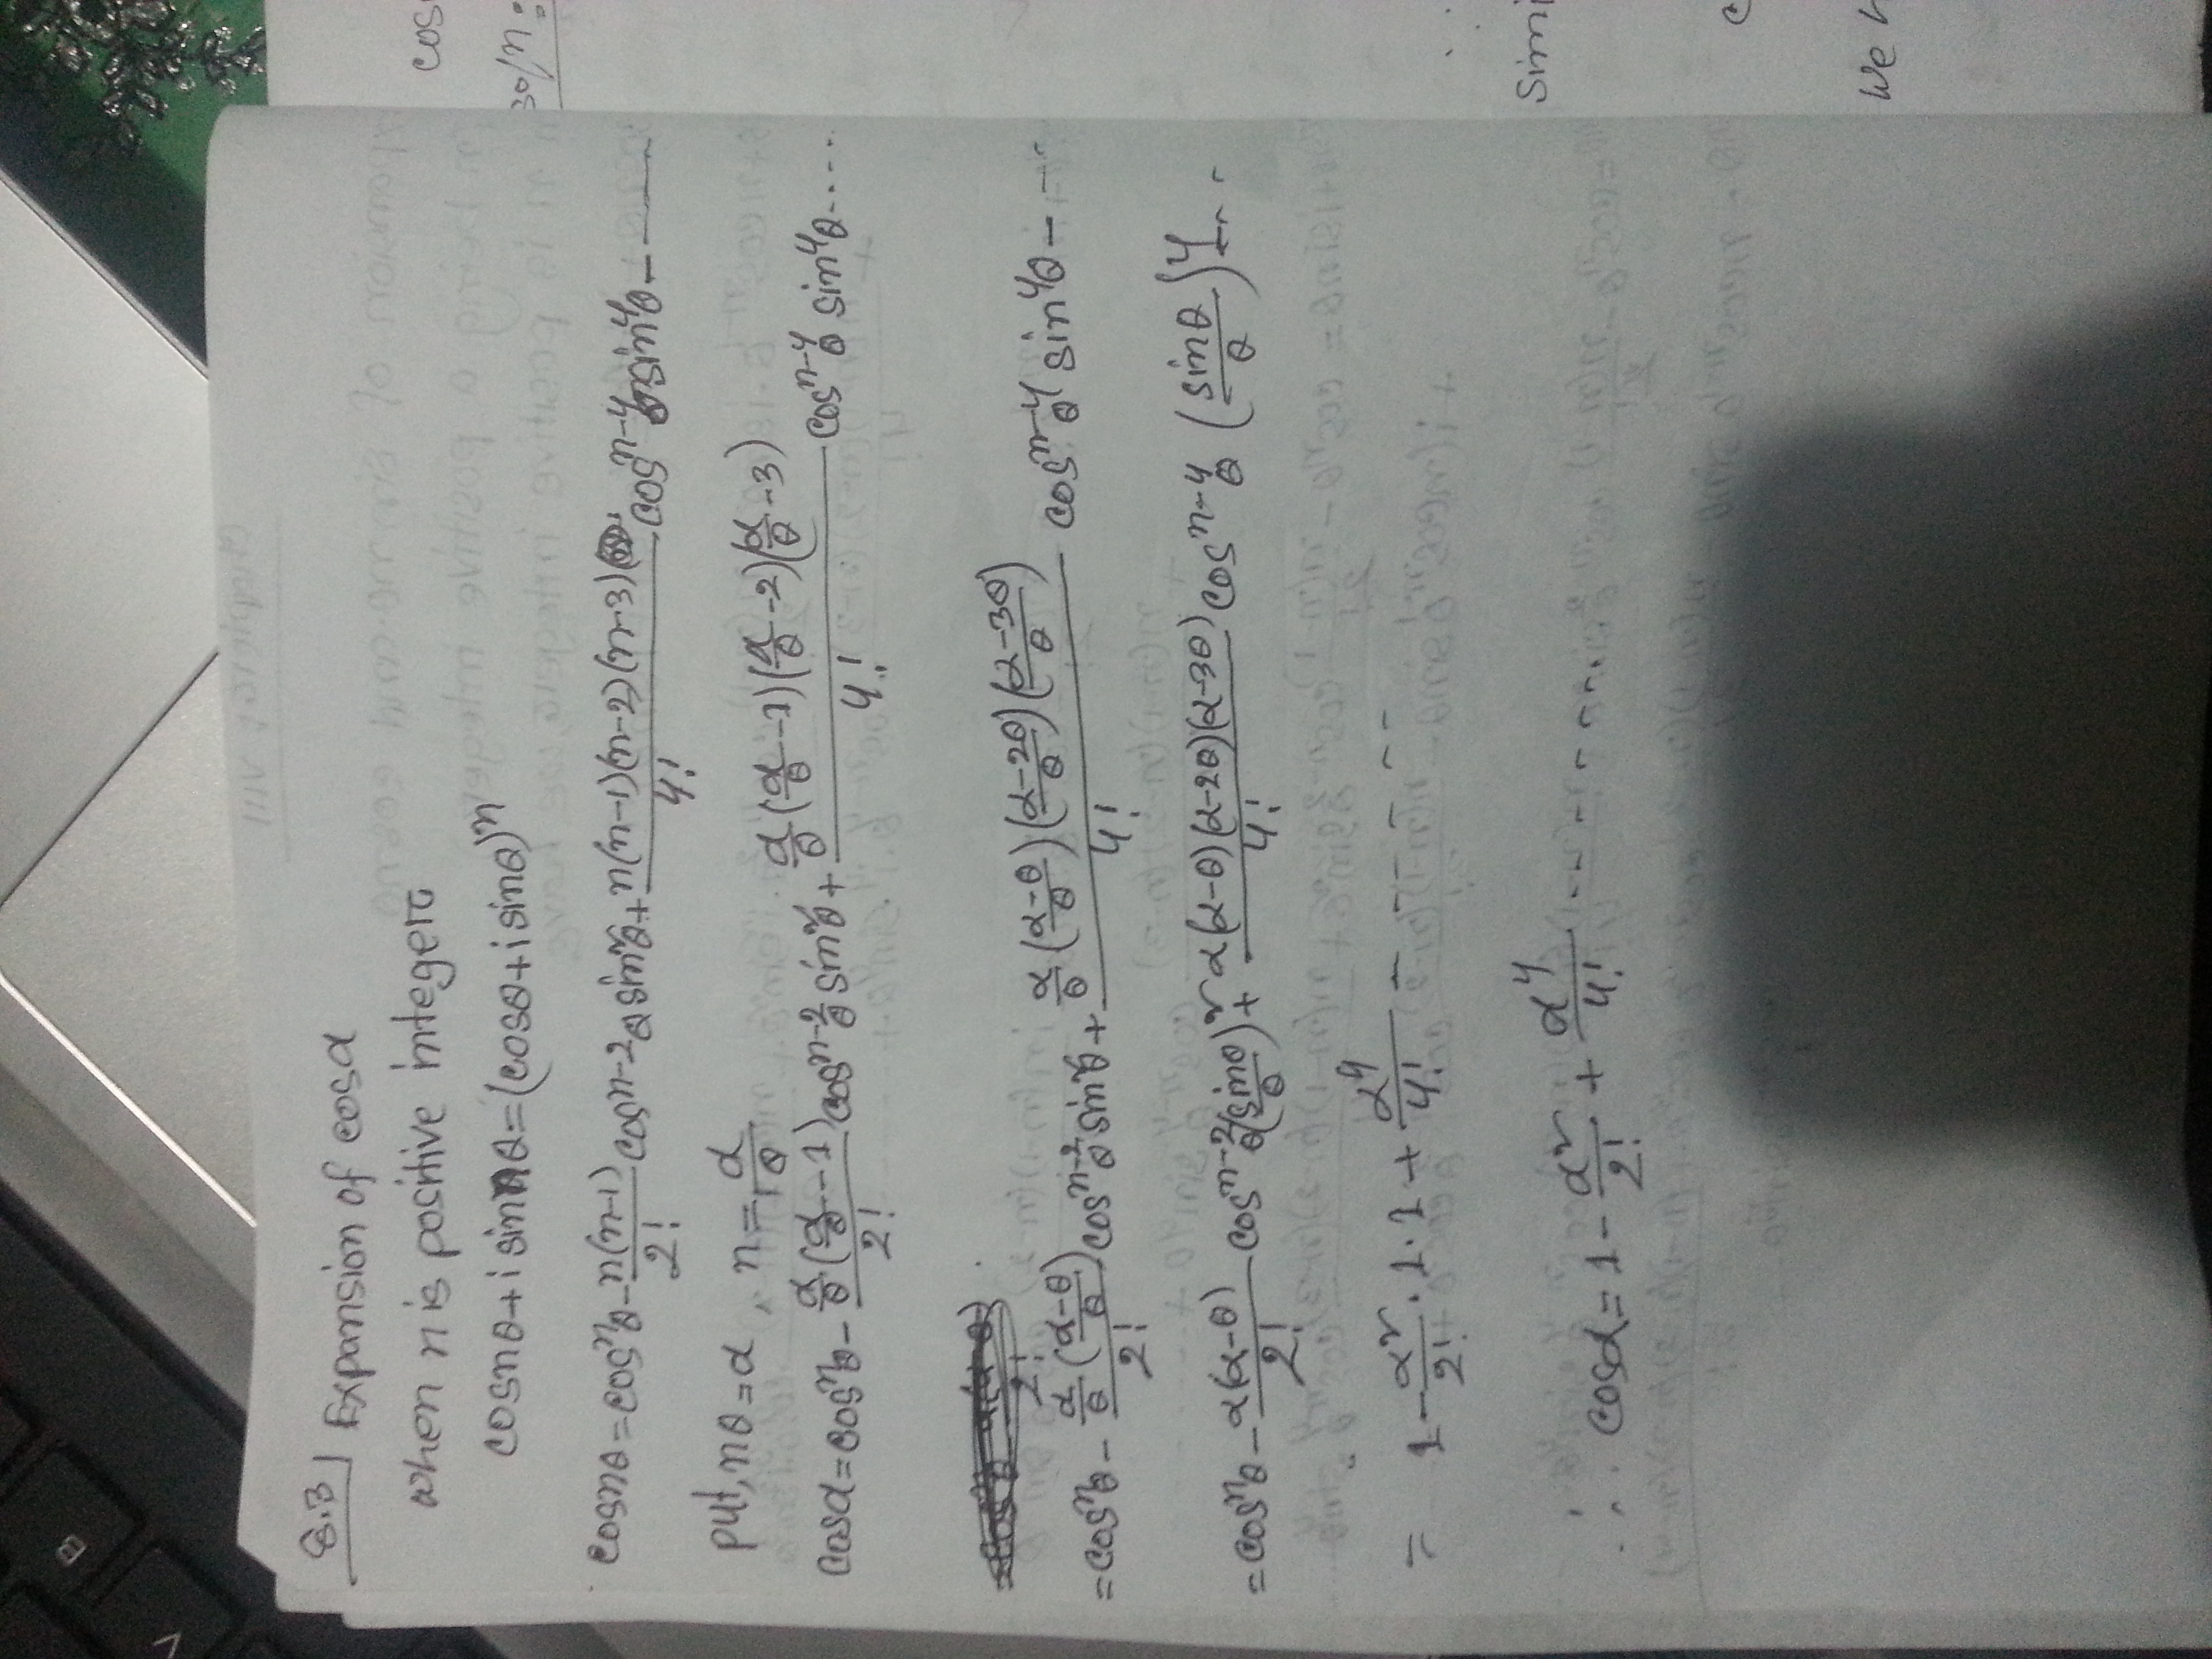 B
V
8.3 Expansion of cosα
when n is positive integer
cosnθ+i sinnθ=(cosθ+i sinθ)ⁿ
cosnθ=cosⁿθ-n(n-1)/2! cosⁿ⁻²θ sin²θ+n(n-1)(n-2)(n-3)/4! cosⁿ⁻⁴θ sin⁴θ- -----
put, nθ=α, n=α/θ
cosα=cosⁿθ-α/θ(α/θ-1)/2! cosⁿ⁻²θ sin²θ+α/θ(α/θ-1)(α/θ-2)(α/θ-3)/4! cosⁿ⁻⁴θ sin⁴θ....
=cosⁿθ-α/θ((α-θ)/θ)/2! cosⁿ⁻²θ sin²θ+α/θ((α-θ)/θ)((α-2θ)/θ)((α-3θ)/θ)/4! cosⁿ⁻⁴θ sin⁴θ- ---
=cosⁿθ-α(α-θ)/2! cosⁿ⁻²θ(sinθ/θ)²+α(α-θ)(α-2θ)(α-3θ)/4! cosⁿ⁻⁴θ (sinθ/θ)⁴- - -
= 1-α²/2!.1.1+α⁴/4! - - - - - - -
∴ cosα=1-α²/2!+α⁴/4! ---------
cos
30/n:
Simi
c
We h